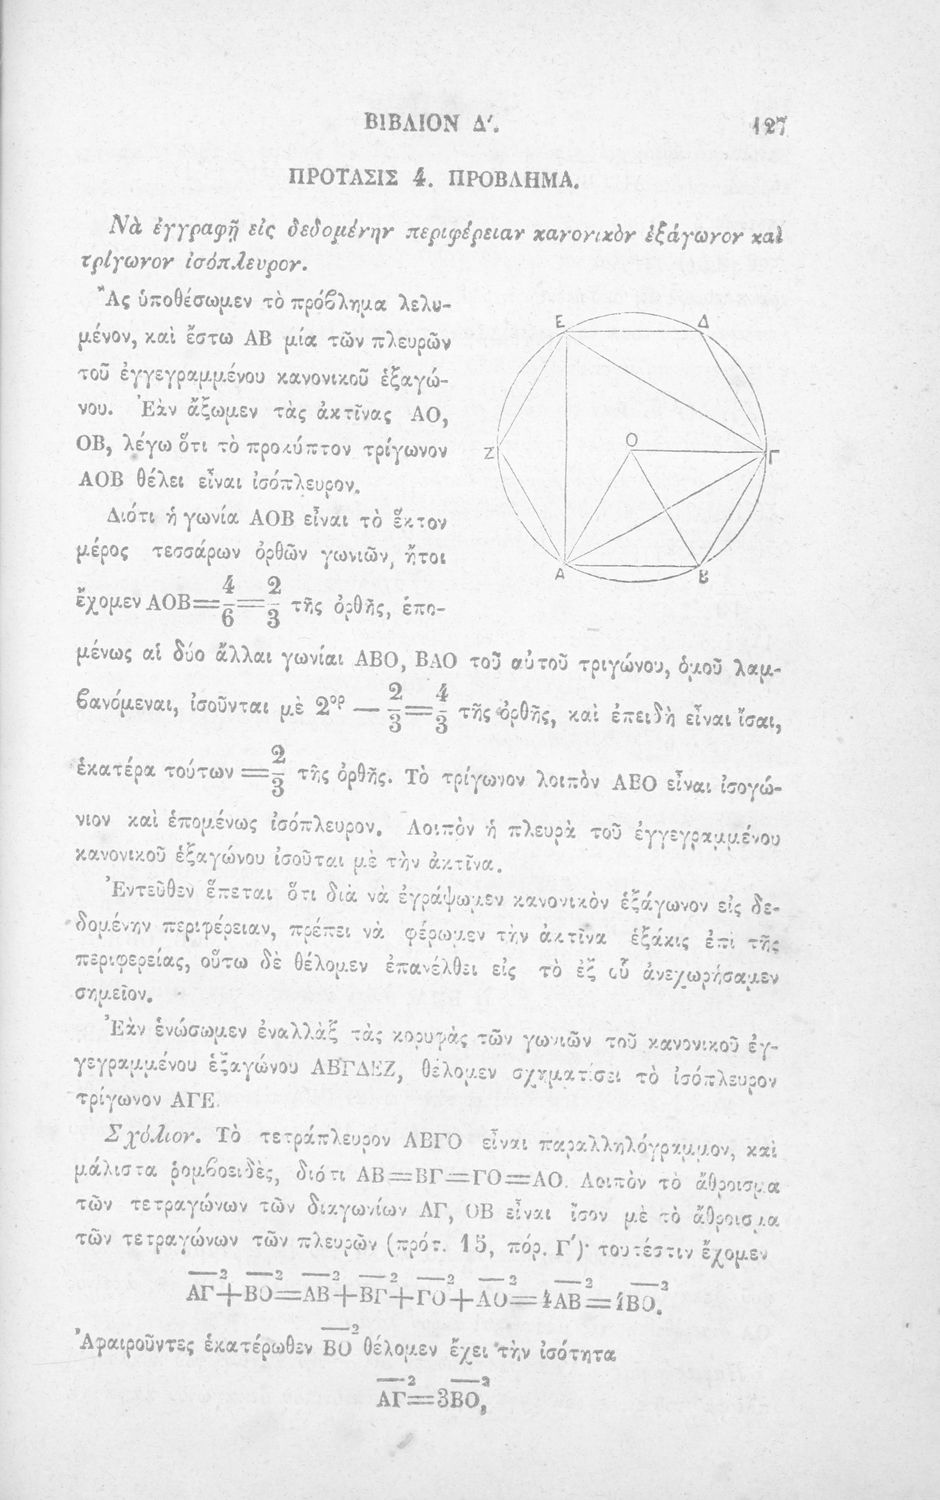 ΒΙΒΛΙΟΝ Δ΄. 127
ΠΡΟΤΑΣΙΣ 4. ΠΡΟΒΛΗΜΑ.
Νὰ ἐγγραφῇ εἰς δεδομένην περιφέρειαν κανονικὸν ἑξάγωνον καὶ
τρίγωνον ἰσόπλευρον.
Ἂς ὑποθέσωμεν τὸ πρόβλημα λελυ-
μένον, καὶ ἔστω ΑΒ μία τῶν πλευρῶν
τοῦ ἐγγεγραμμένου κανονικοῦ ἑξαγώ-
νου. Ἐὰν ἄξωμεν τὰς ἀκτῖνας ΑΟ,
ΟΒ, λέγω ὅτι τὸ προκύπτον τρίγωνον
ΑΟΒ θέλει εἶναι ἰσόπλευρον.
Διότι ἡ γωνία ΑΟΒ εἶναι τὸ ἕκτον
μέρος τεσσάρων ὀρθῶν γωνιῶν, ἤτοι
ἔχομεν ΑΟΒ=4/6=2/3 τῆς ὀρθῆς, ἑπο-
Ε Δ
Ζ Ο Γ
Α Β
μένως αἱ δύο ἄλλαι γωνίαι ΑΒΟ, ΒΑΟ τοῦ αὐτοῦ τριγώνου, ὁμοῦ λαμ-
βανόμεναι, ἰσοῦνται μὲ 2ᵒᵖ — 2/3=4/3 τῆς ὀρθῆς, καὶ ἐπειδὴ εἶναι ἴσαι,
ἑκατέρα τούτων =2/3 τῆς ὀρθῆς. Τὸ τρίγωνον λοιπὸν ΑΒΟ εἶναι ἰσογώ-
νιον καὶ ἑπομένως ἰσόπλευρον. Λοιπὸν ἡ πλευρὰ τοῦ ἐγγεγραμμένου
κανονικοῦ ἑξαγώνου ἰσοῦται μὲ τὴν ἀκτῖνα.
Ἐντεῦθεν ἕπεται ὅτι διὰ νὰ ἐγράψωμεν κανονικὸν ἑξάγωνον εἰς δε-
δομένην περιφέρειαν, πρέπει νὰ φέρωμεν τὴν ἀκτῖνα ἑξάκις ἐπὶ τῆς
περιφερείας, οὕτω δὲ θέλομεν ἐπανέλθει εἰς τὸ ἐξ οὗ ἀνεχωρήσαμεν
σημεῖον.
Ἐὰν ἑνώσωμεν ἐναλλὰξ τὰς κορυφὰς τῶν γωνιῶν τοῦ κανονικοῦ ἐγ-
γεγραμμένου ἑξαγώνου ΑΒΓΔΕΖ, θέλομεν σχηματίσει τὸ ἰσόπλευρον
τρίγωνον ΑΓΕ.
Σχόλιον. Τὸ τετράπλευρον ΑΒΓΟ εἶναι παραλληλόγραμμον, καὶ
μάλιστα ῥομβοειδὲς, διότι ΑΒ=ΒΓ=ΓΟ=ΑΟ. Λοιπὸν τὸ ἄθροισμα
τῶν τετραγώνων τῶν διαγωνίων ΑΓ, ΟΒ εἶναι ἴσον μὲ τὸ ἄθροισμα
τῶν τετραγώνων τῶν πλευρῶν (πρότ. 15, πόρ. Γ΄)· τουτέστιν ἔχομεν
ΑΓ²+ΒΟ²=ΑΒ²+ΒΓ²+ΓΟ²+ΑΟ²=4ΑΒ²=4ΒΟ².
Ἀφαιροῦντες ἑκατέρωθεν ΒΟ² θέλομεν ἔχει τὴν ἰσότητα
ΑΓ²=3ΒΟ²,